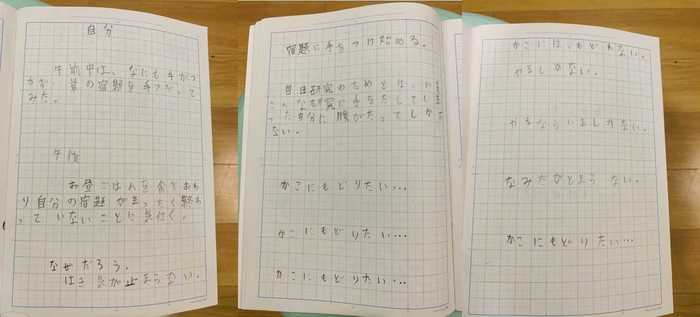 自分
午前中は、なにも手がつ
かず、弟の宿題を手つだって
みた。
午後
お昼ごはんを食べおわ
り自分の宿題がまったく終わ
っていないことに気付く。
なぜだろう。
はき気が止まらない。
宿題に手をつけ始める。
自由研究のためとはいえ
こんな研究に手をだしてしま
った自分に腹がたってしかた
ない。
かこにもどりたい…
かこにもどりたい…
かこにもどりたい…
かこには、もどれない。
やるしかない。
やるならいましかない。
なみだがとまらない。
かこにもどりたい…